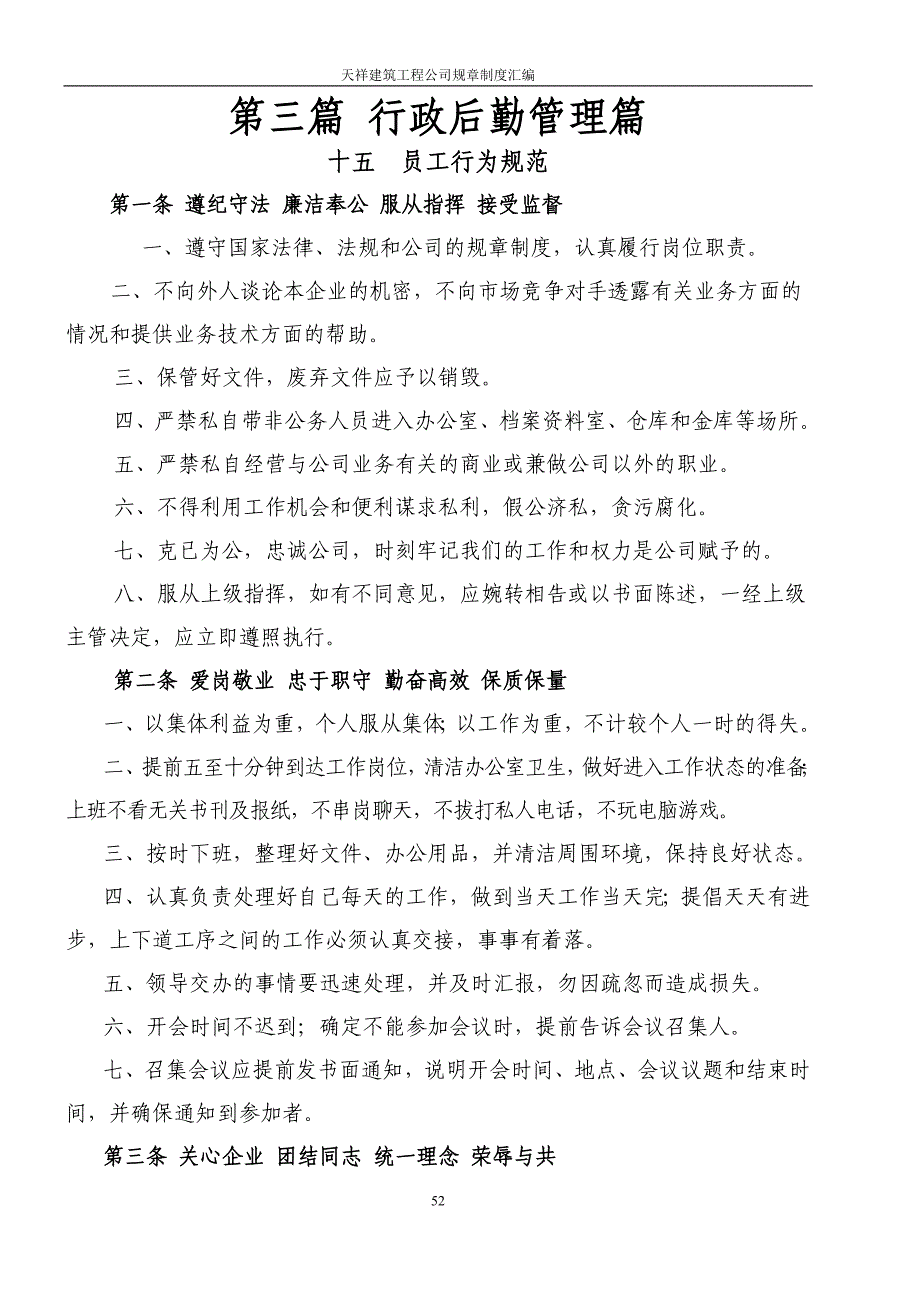 天祥建筑工程公司规章制度汇编
第三篇 行政后勤管理篇
十五 员工行为规范
第一条 遵纪守法 廉洁奉公 服从指挥 接受监督
一、遵守国家法律、法规和公司的规章制度，认真履行岗位职责。
二、不向外人谈论本企业的机密，不向市场竞争对手透露有关业务方面的
情况和提供业务技术方面的帮助。
三、保管好文件，废弃文件应予以销毁。
四、严禁私自带非公务人员进入办公室、档案资料室、仓库和金库等场所。
五、严禁私自经营与公司业务有关的商业或兼做公司以外的职业。
六、不得利用工作机会和便利谋求私利，假公济私，贪污腐化。
七、克已为公，忠诚公司，时刻牢记我们的工作和权力是公司赋予的。
八、服从上级指挥，如有不同意见，应婉转相告或以书面陈述，一经上级
主管决定，应立即遵照执行。
第二条 爱岗敬业 忠于职守 勤奋高效 保质保量
一、以集体利益为重，个人服从集体；以工作为重，不计较个人一时的得失。
二、提前五至十分钟到达工作岗位，清洁办公室卫生，做好进入工作状态的准备；
上班不看无关书刊及报纸，不串岗聊天，不拨打私人电话，不玩电脑游戏。
三、按时下班，整理好文件、办公用品，并清洁周围环境，保持良好状态。
四、认真负责处理好自己每天的工作，做到当天工作当天完；提倡天天有进
步，上下道工序之间的工作必须认真交接，事事有着落。
五、领导交办的事情要迅速处理，并及时汇报，勿因疏忽而造成损失。
六、开会时间不迟到；确定不能参加会议时，提前告诉会议召集人。
七、召集会议应提前发书面通知，说明开会时间、地点、会议议题和结束时
间，并确保通知到参加者。
第三条 关心企业 团结同志 统一理念 荣辱与共
52